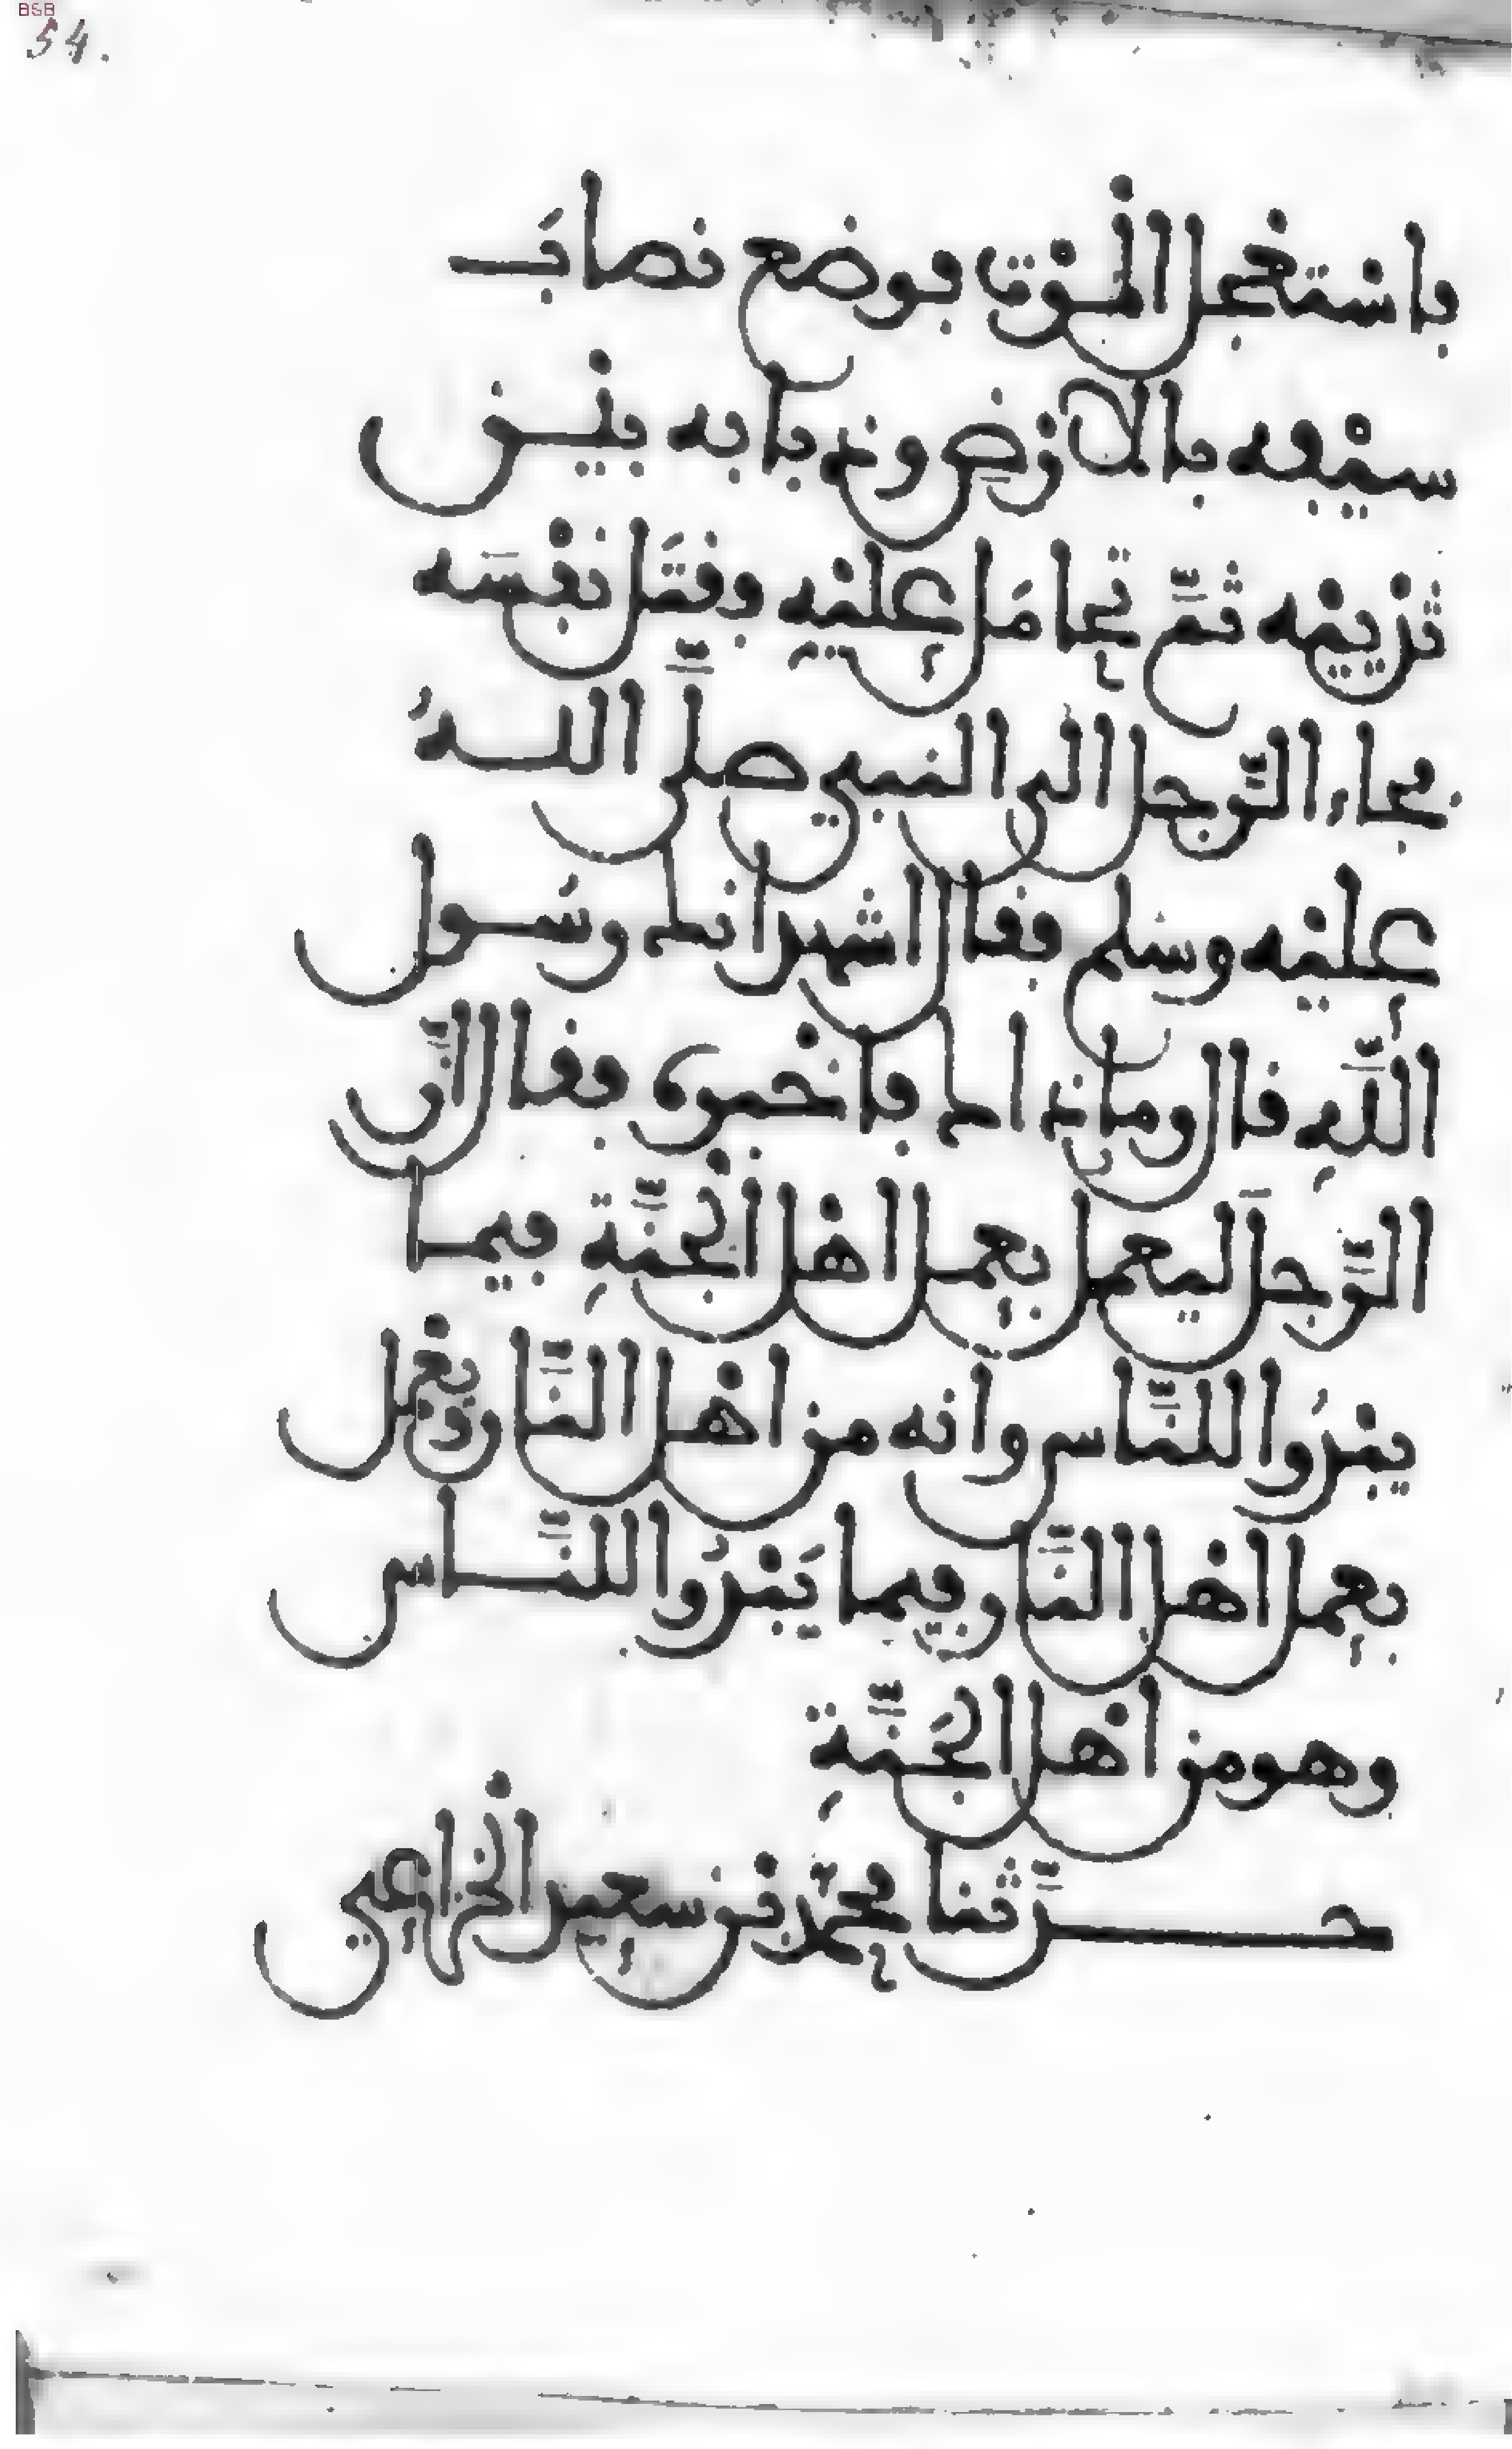 BSB
54.
فاسْتعْجل المْوْت فوضع نصابَ
سيْفه بالارْض وذبابه بيْن
ثدْييْه ثمَّ تحامَل عليْه فقتَل نفْسَه
فجاء الرَّجل الى النبي صلَّى اللهُ
عليْه وسلم فقال اشهد انك رسُول
اللَّهِ قال وما ذاك فاخْبره فقال انَّ
الرَّجلَ ليعمل بعمل اهْل الجْنَّةِ فيما
يبْدُوا للنَّاس وانه من اهْل النَّار ويعْمل
بعمل اهْل النَّار فيما يَبْدُوا للنَّاس
وهو من اهْل الجَنَّةِ
حدَّثنا محمَّد بْن سعيد الخْزاعي